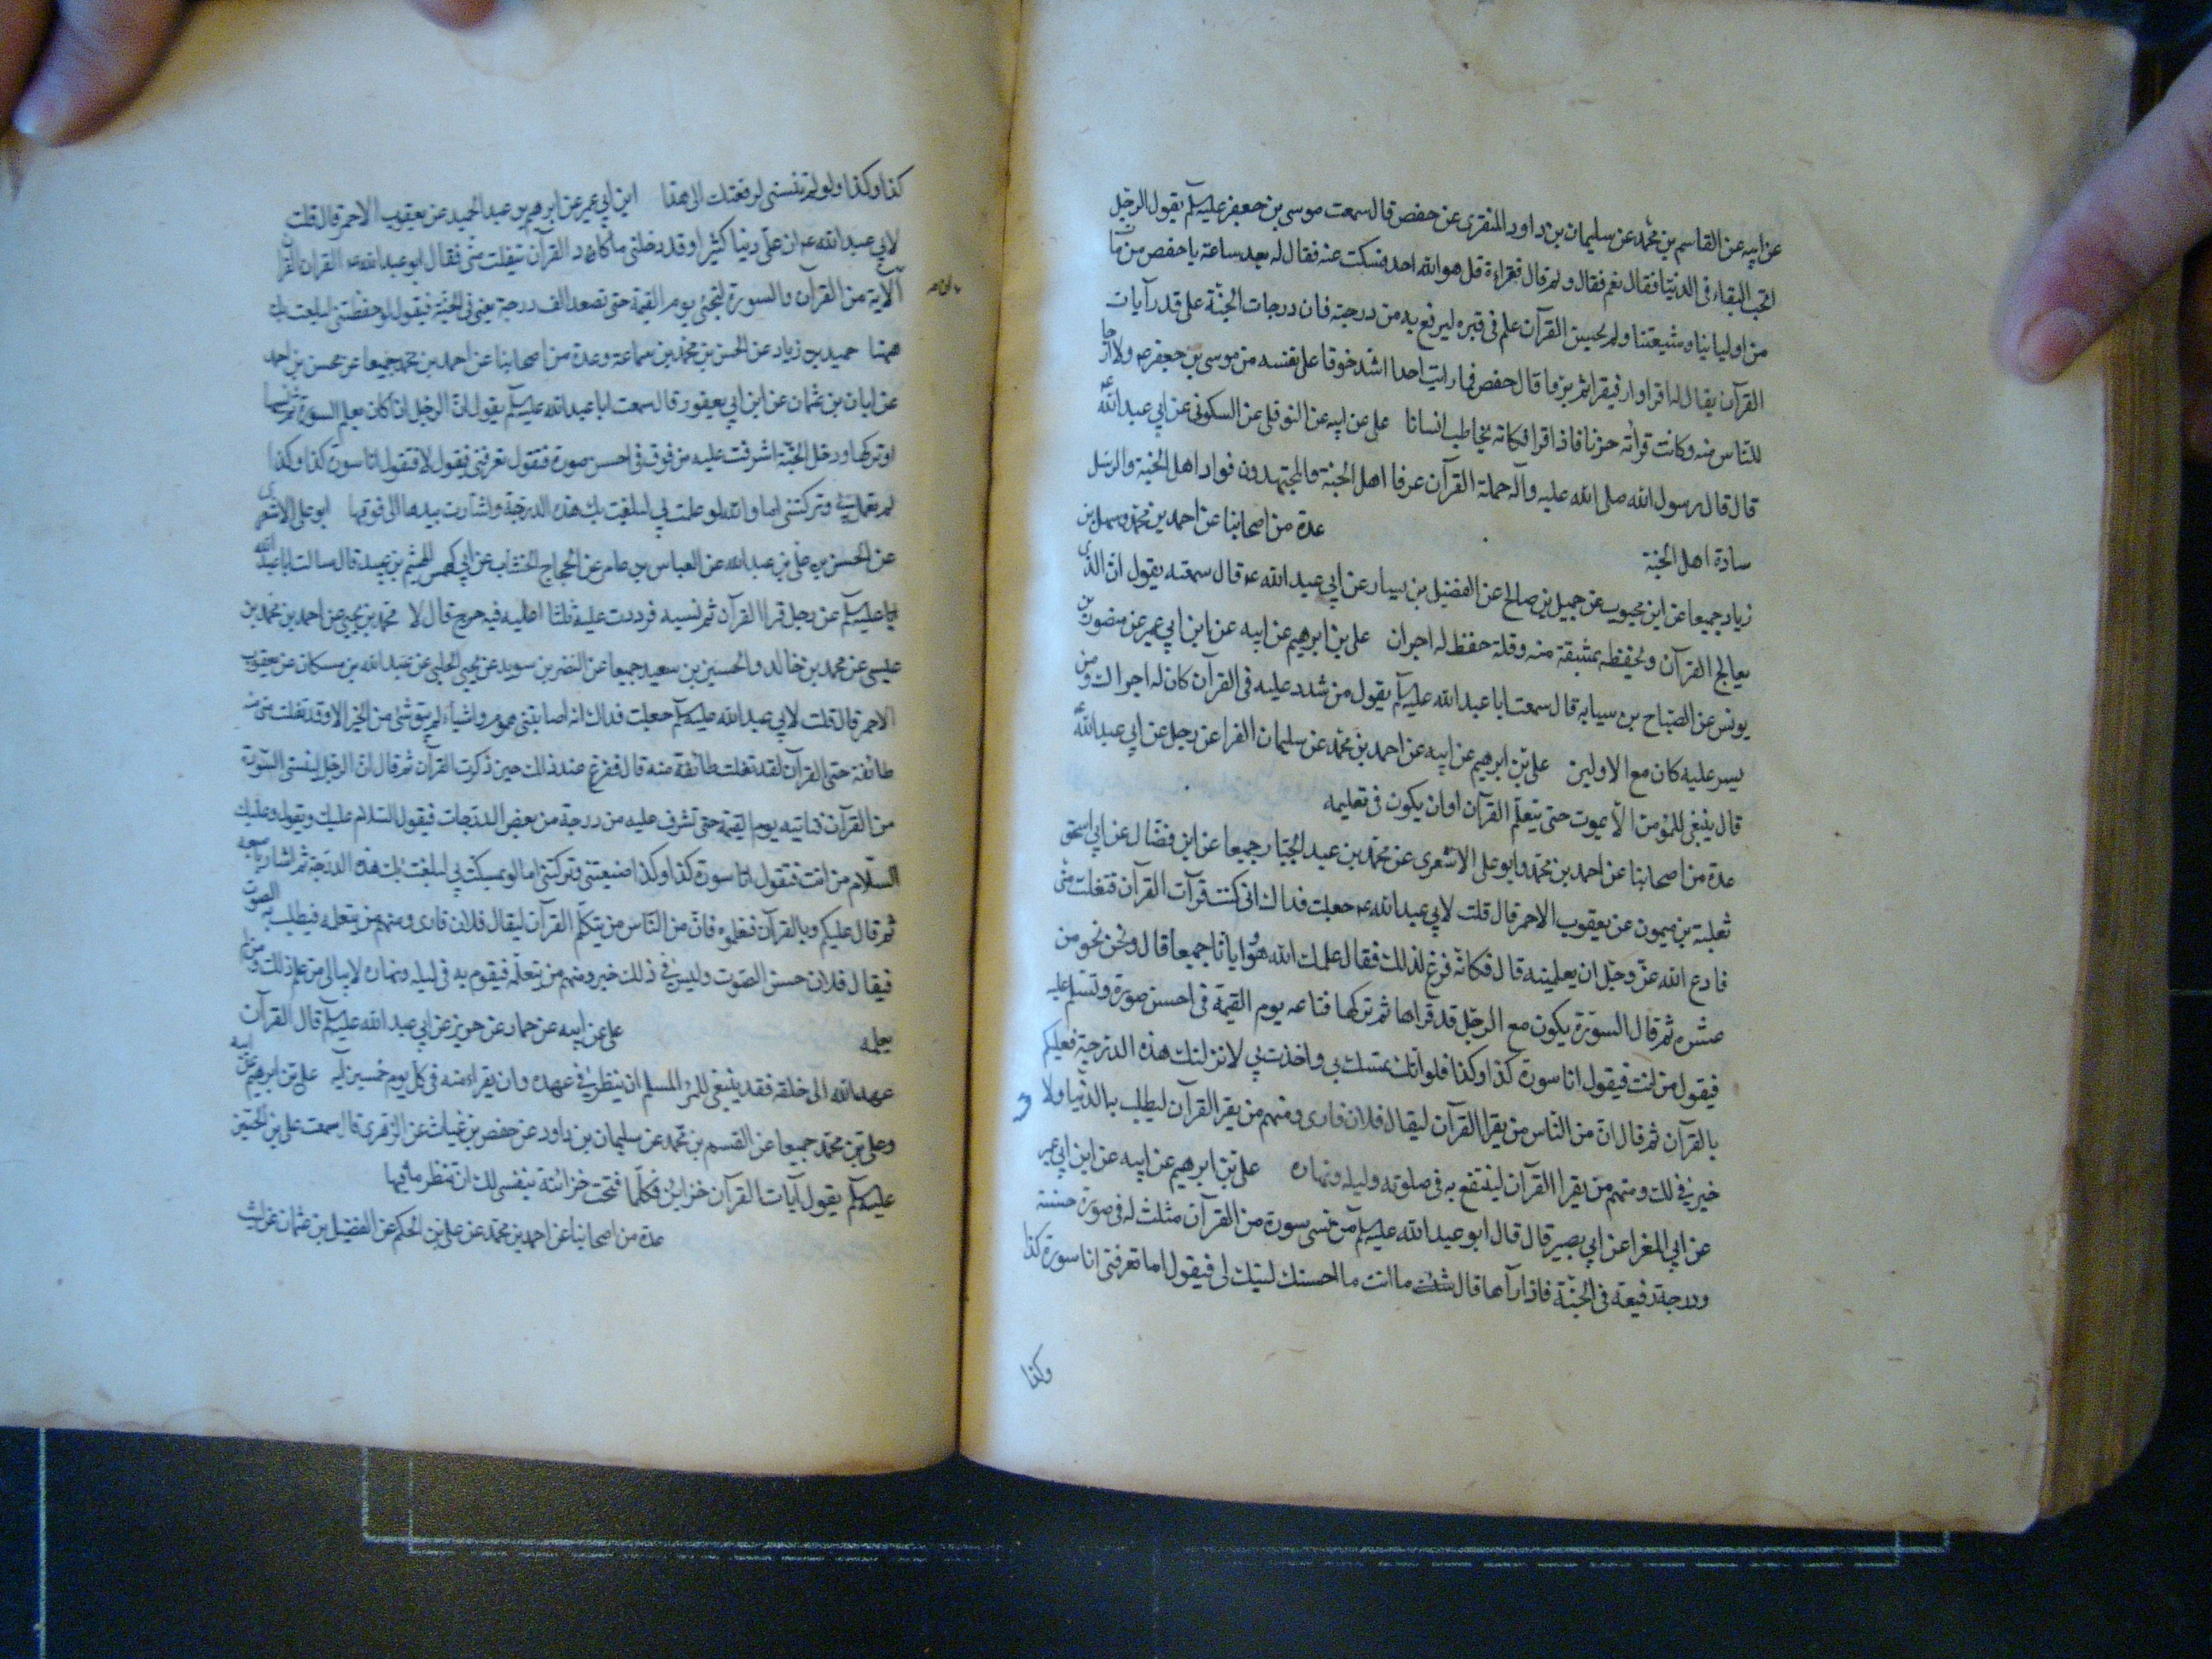 عن ابيه عن القاسم بن محمد عن سليمان بن داود المنقرى عن حفص قال سمعت موسى بن جعفر عليه السلم يقول الرجل
اتحب البقاء فى الدنيا فقال نعم فقال ولم قال لقراءة قل هو الله احد فسكت عنه فقال له بعد ساعة يا حفص من مات
من اوليائنا وشيعتنا ولم يحسن القرآن علم فى قبره ليرفع به من درجته فان درجات الجنة على قدر آيات
القرآن يقال له اقرا وارق فيقرا ثم يرقا قال حفص فما رايت احدا اشد خوفا على نفسه من موسى بن جعفر ع ولا ارجا
للناس منه وكانت قرأته حزنا فاذا قرا فكانه يخاطب انسانا على عن ابيه عن النوفلى عن السكونى عن ابى عبد الله ع
قال قال رسول الله صلى الله عليه وآله حملة القرآن عرفا اهل الجنة والمجتهدون قواد اهل الجنة والرسل
سادة اهل الجنة عدة من اصحابنا عن احمد بن محمد وسهل بن
زياد جميعا عن ابن محبوب عن جميل بن صالح عن الفضيل بن يسار عن ابى عبد الله ع قال سمعته يقول ان الذى
يعالج القرآن ويحفظه بمشقة منه وقلة حفظ له اجران على بن ابرهيم عن ابيه عن ابن ابى عمير عن منصور بن
يونس عن الصباح بن سيابه قال سمعت ابا عبد الله عليه السلم يقول من شدد عليه فى القرآن كان له اجران ومن
يسر عليه كان مع الاولين على بن ابرهيم عن ابيه عن احمد بن محمد عن سليمان الفرا عن رجل عن ابى عبد الله ع
قال ينبغى للمؤمن الا يموت حتى يتعلم القرآن او ان يكون فى تعليمه
عدة من اصحابنا عن احمد بن محمد وابو على الاشعرى عن محمد بن عبد الجبار جميعا عن ابن فضال عن ابى اسحق
ثعلبة بن ميمون عن يعقوب الاحمر قال قلت لابى عبد الله ع جعلت فداك انى كنت قرآت القرآن فتفلت منى
فادع الله عز وجل ان يعلمنيه قال فكانه فزع لذلك فقال علمك الله هو وايانا جميعا قال ونحن نحو من
عشره ثم قال السورة يكون مع الرجل قد قراها ثم تركها فتاته يوم القيمة فى احسن صورة وتسلم عليه
فيقول من انت فيقول انا سورة كذا وكذا فلو انك تمسكت بى واخذت بى لانزلتك هذه الدرجة فعليكم
بالقرآن ثم قال ان من الناس من يقرا القرآن ليقال فلان قارى ومنهم من يقرا القرآن ليطلب به الدنيا ولا
خير فى ذلك ومنهم من يقرا القرآن لينتفع به فى صلوته وليله ونهاره على بن ابرهيم عن ابيه عن ابن ابى عمير
عن ابى المغرا عن ابى بصير قال قال ابو عبد الله عليه السلم من نسى سورة من القرآن مثلت له فى صورة حسنة
ودرجة رفيعة فى الجنة فاذا رآها قال ما انت ما احسنك ليتك لى فيقول اما تعرفنى انا سورة كذا
وكذا
كذا وكذا ولو لم تنسنى لرفعتك الى هذا ابن ابى عمير عن ابرهيم بن عبد الحميد عن يعقوب الاحمر قال قلت
لابى عبد الله ع ان على دينا كثيرا وقد دخلنى ما كاد القرآن يتفلت منى فقال ابو عبد الله ع القران القرآن
الآية من القرآن والسورة لتجئ يوم القيمة حتى تصعد الف درجة يعنى فى الجنة فيقول لو حفظتنى لبلغت بك
ههنا حميد بن زياد عن الحسن بن محمد بن سماعة وعدة من اصحابنا عن احمد بن محمد جميعا عن محسن بن احمد
عن ابان بن عثمان عن ابن ابى يعفور قال سمعت ابا عبد الله عليه السلم يقول ان الرجل اذا كان يعلم السورة ثم نسيها
او تركها ودخل الجنة اشرفت عليه من فوق فى احسن صورة فتقول تعرفنى فيقول لا فتقول انا سورة كذا وكذا
لم تعمل بى وتركتنى اما والله لو عملت بى لبلغت بك هذه الدرجة واشارت بيدها الى فوقها ابو على الاشعرى
عن الحسن بن على بن عبد الله عن العباس بن عامر عن الحجاج الخشاب عن ابى كهمس الهيثم بن عبيد قال سالت ابا عبد الله
عليه السلم عن رجل قرا القرآن ثم نسيه فرددت عليه ثلثا اعليه فيه حرج قال لا محمد بن يحيى عن احمد بن محمد بن
عيسى عن محمد بن خالد والحسين بن سعيد جميعا عن النضر بن سويد عن يحيى الحلبى عن عبد الله بن مسكان عن يعقوب
الاحمر قال قلت لابى عبد الله عليه السلم جعلت فداك انه اصابتنى هموم واشياء لم يبق شئ من الخير الا وقد تفلت منى منه
طائفة حتى القرآن لقد تفلت طائفة منه قال ففزع عند ذلك حين ذكرت القرآن ثم قال ان الرجل لينسى السورة
من القرآن فتاتيه يوم القيمة حتى تشرف عليه من درجة من بعض الدرجات فيقول السلام عليك ويقول وعليك
السلام من انت فيقول انا سورة كذا وكذا ضيعتنى وتركتنى اما لو تمسكت بى لبلغت بك هذه الدرجة ثم اشار باصبعه
ثم قال عليكم وبالقرآن فتعلموه فان من الناس من يتعلم القرآن ليقال فلان قارى ومنهم من يتعلمه فيطلب به الصوت
فيقال فلان حسن الصوت وليس فى ذلك خير ومنهم من يتعلمه فيقوم به فى ليله ونهاره لا يبالى من علم ذلك ومن لم
يعلمه على عن ابيه عن حماد عن حريز عن ابى عبد الله عليه السلم قال القرآن
عهد الله الى خلقه فقد ينبغى للمرء المسلم ان ينظر فى عهده وان يقراء منه فى كل يوم خمسين آية على بن ابرهيم عن ابيه
وعلى بن محمد جميعا عن القسم بن محمد عن سليمان بن داود عن حفص بن غياث عن الزهرى قال سمعت على بن الحسين
عليه السلم يقول آيات القرآن خزاين فكلما فتحت خزانة ينبغى لك ان تنظر ما فيها
عدة من اصحابنا عن احمد بن محمد عن على بن الحكم عن الفضيل بن عثمان عن ليث